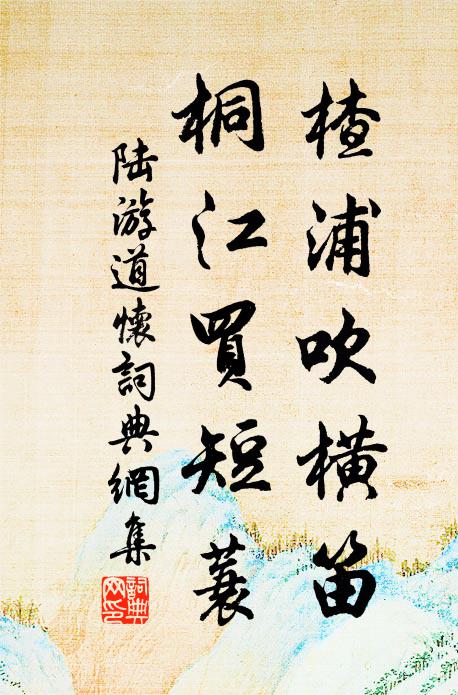 楂浦吹橫笛
桐江買短蓑
陸游道懷詞典網集
詞典网印